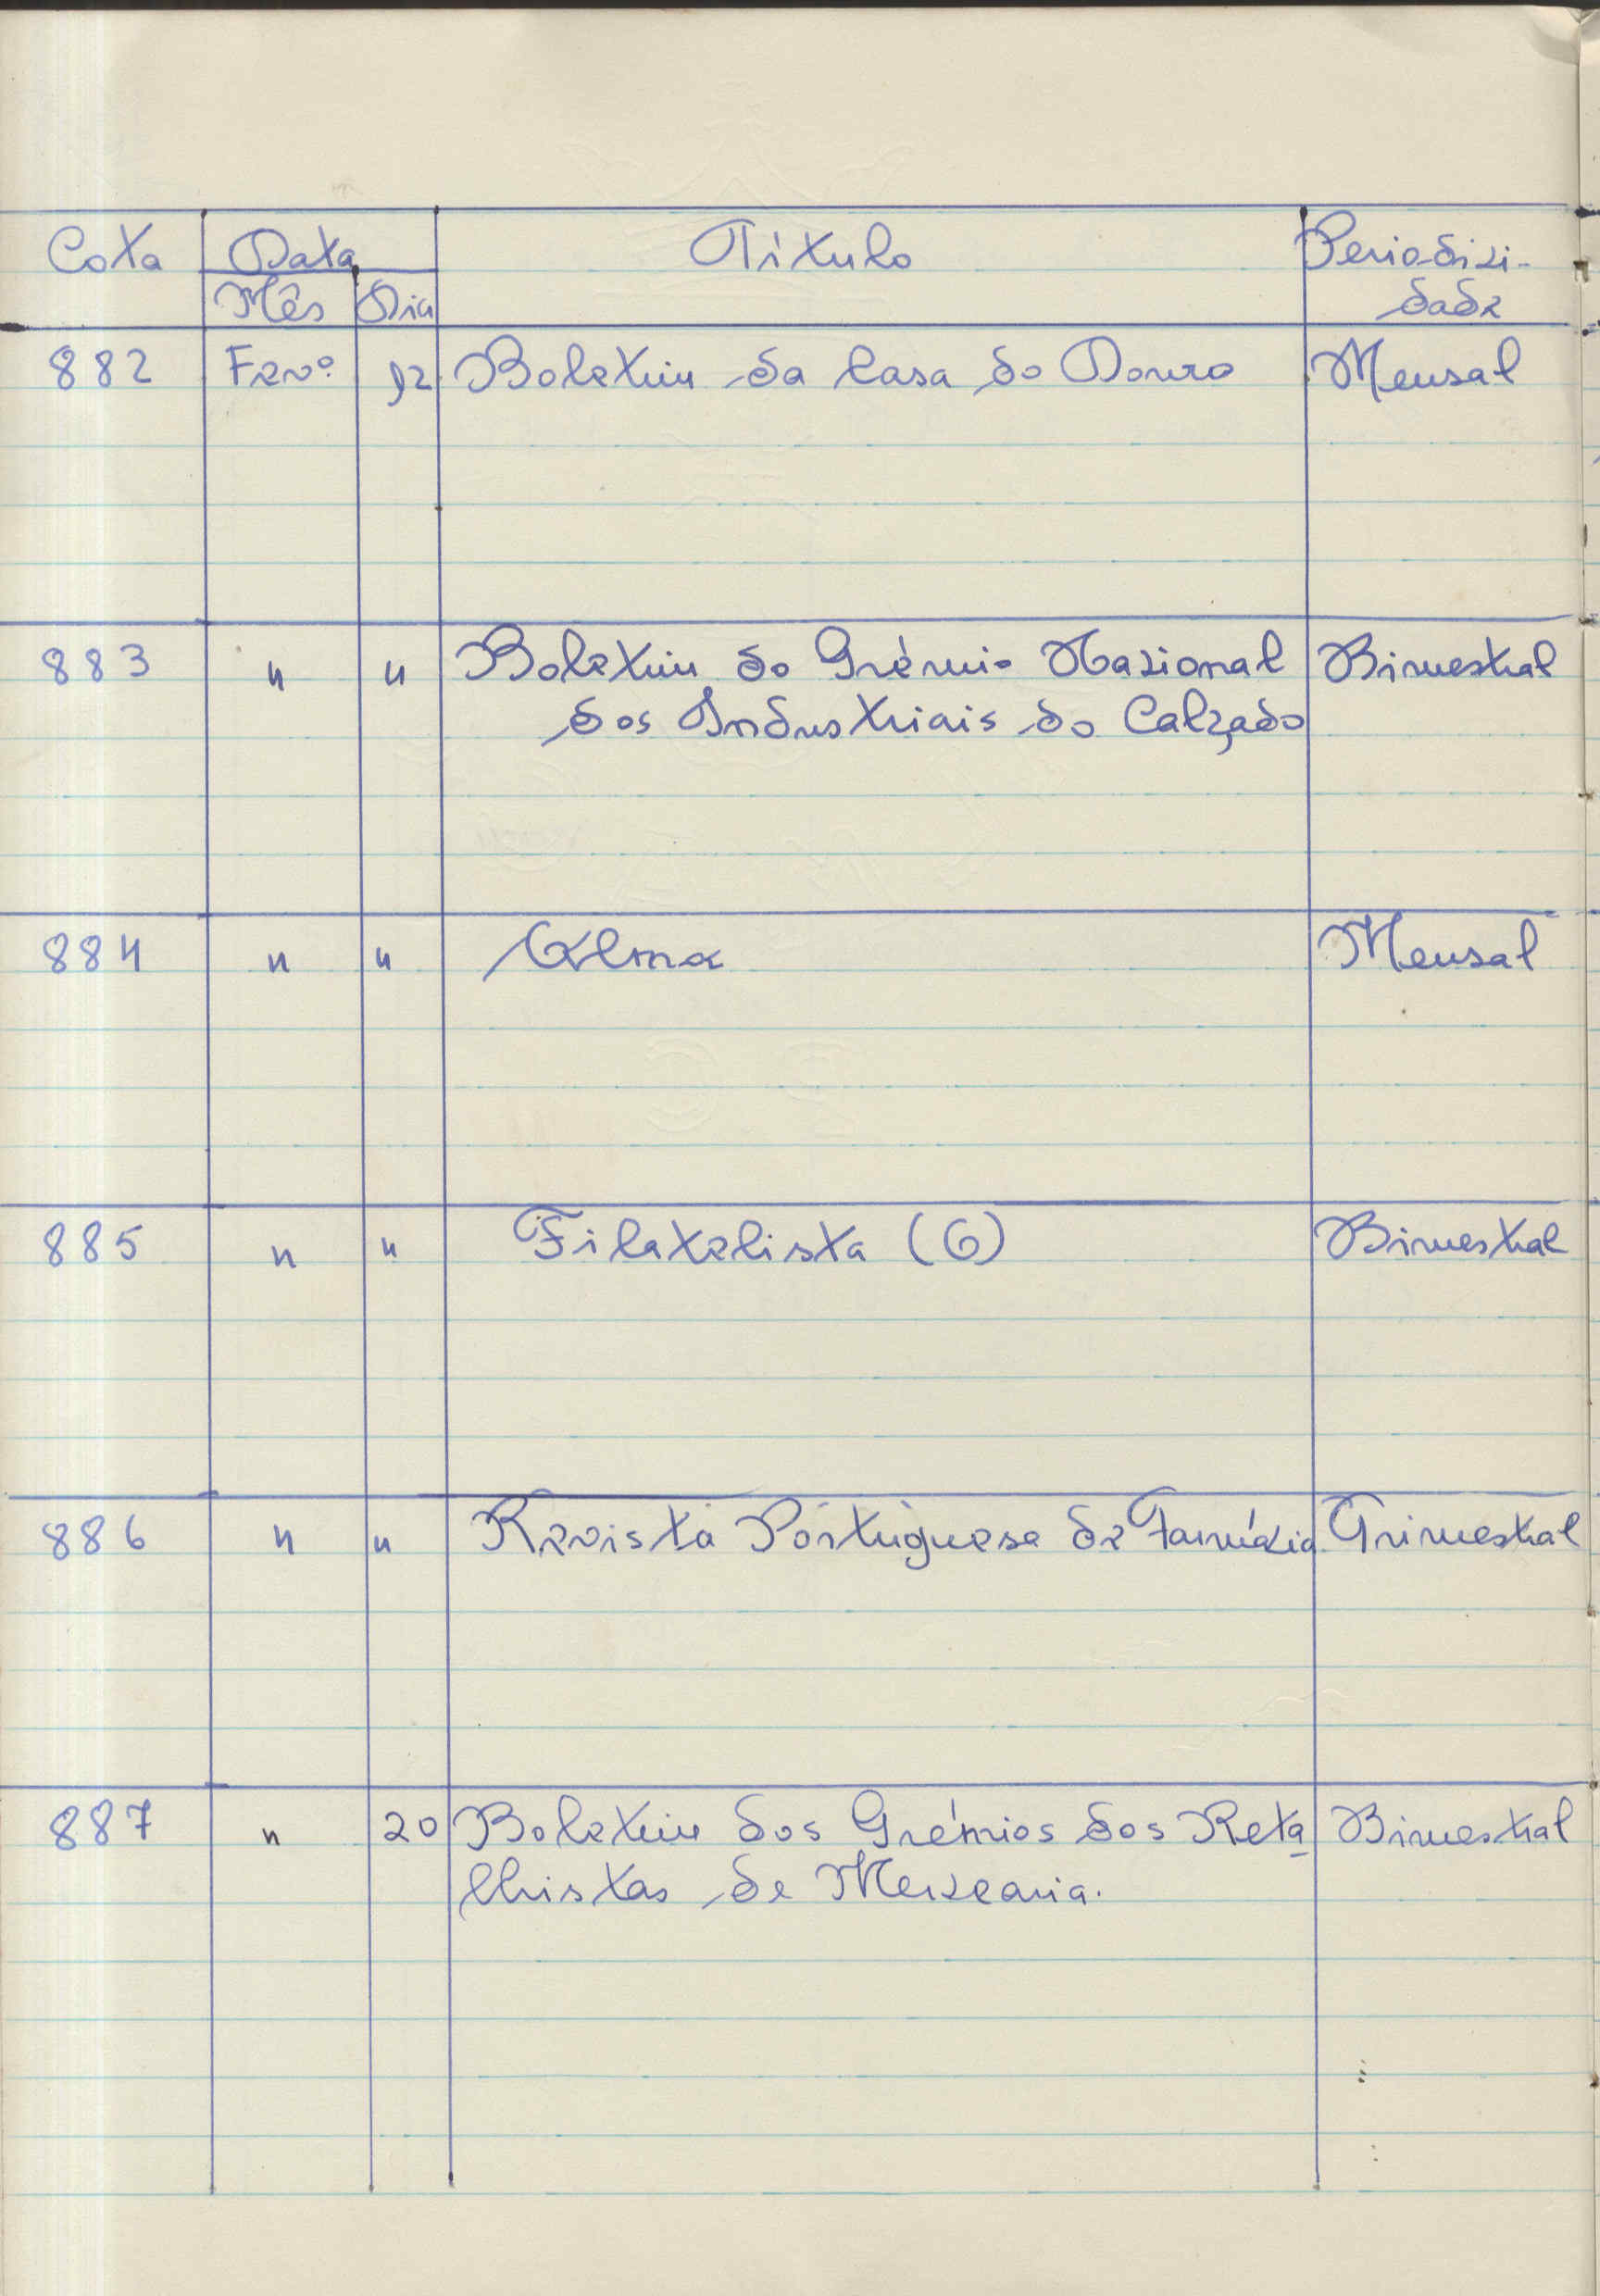 Cota Data Título Periodici-
Mês Dia dade
882 Fevº 12 Boletim da Casa do Douro Mensal
883 " " Boletim do Grémio Nacional Bimestral
dos Industriais do Calçado
884 " " Alma Mensal
885 " " Filatelista (O) Bimestral
886 " " Revista Portuguesa de Farmácia Trimestral
887 " 20 Boletim dos Grémios dos Reta- Bimestral
lhistas de Mercearia.